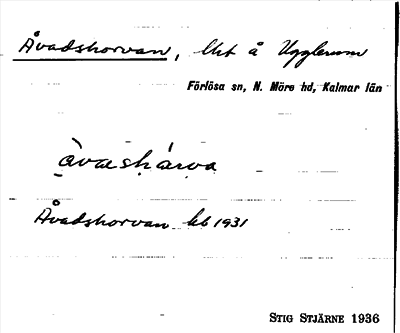 Åvadshorvan, Urt å Ugglerum
Förlösa sn, N. Möre hd, Kalmar län
åvashårva
Åvadshorvan kb 1931
STIG STJÄRNE 1936